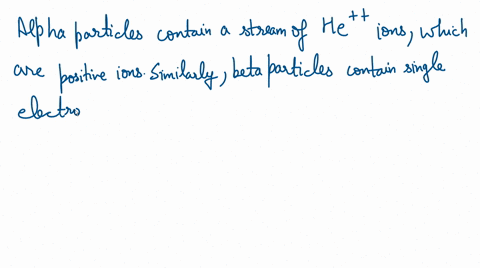 Alpha particles contain a stream of He++ ions, which
are positive ions. Similarly, beta particles contain single
electro